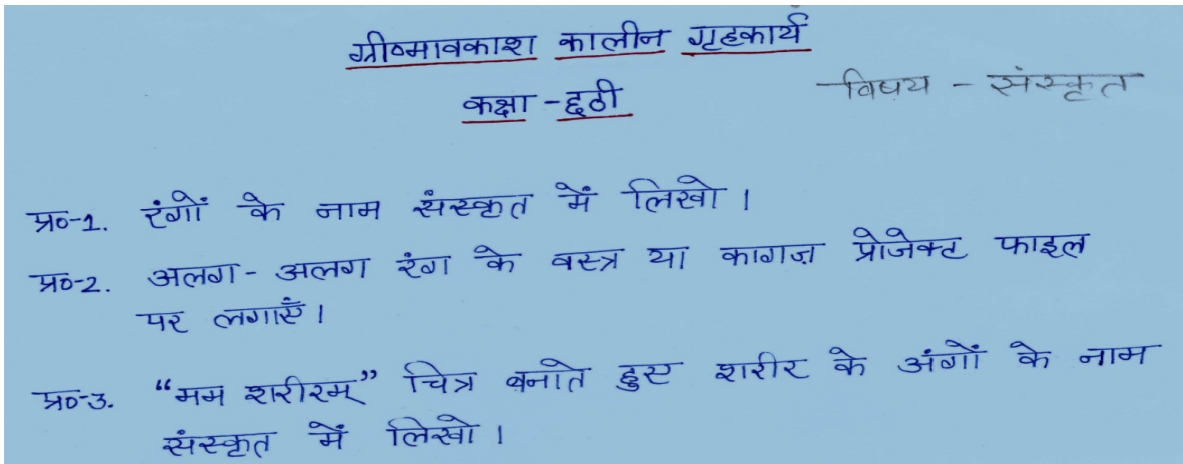 ग्रीष्मावकाश कालीन गृहकार्य
कक्षा - छठी
विषय - संस्कृत
प्र०-1. रंगों के नाम संस्कृत में लिखो ।
प्र०-2. अलग - अलग रंग के वस्त्र या कागज़ प्रोजेक्ट फाइल
पर लगाएँ ।
प्र०-3. “मम शरीरम्” चित्र बनाते हुए शरीर के अंगों के नाम
संस्कृत में लिखो ।